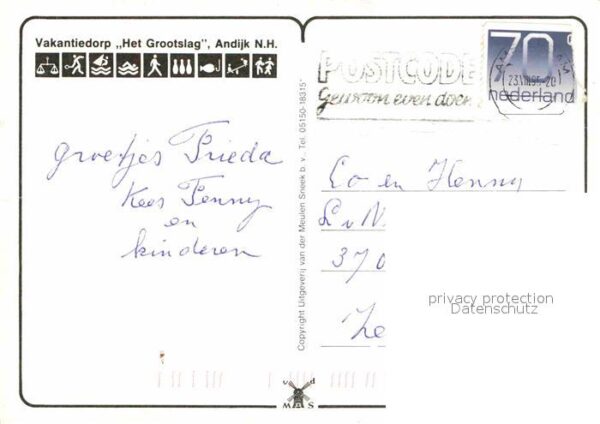 Vakantiedorp „Het Grootslag", Andijk N.H.
groetjes Frieda
Kees Fenny
en
kinderen
Copyright Uitgeverij van der Meulen Sneek b.v., Tel. 05150-18315*
POSTCODE
Gewoon even doen
70c
nederland
Co en Henny
L v N
370
Ze
privacy protection
Datenschutz
v d
MAS